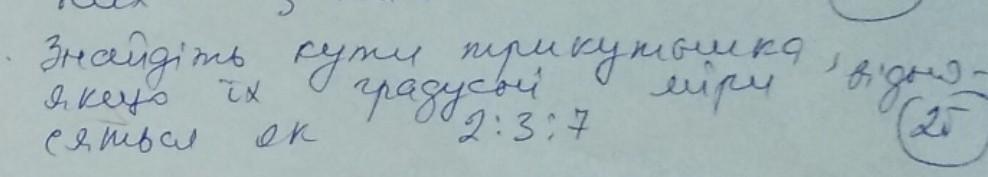 Знайдіть кути трикутника,
якщо їх градусні міри відно-
сяться як 2:3:7 (2б)